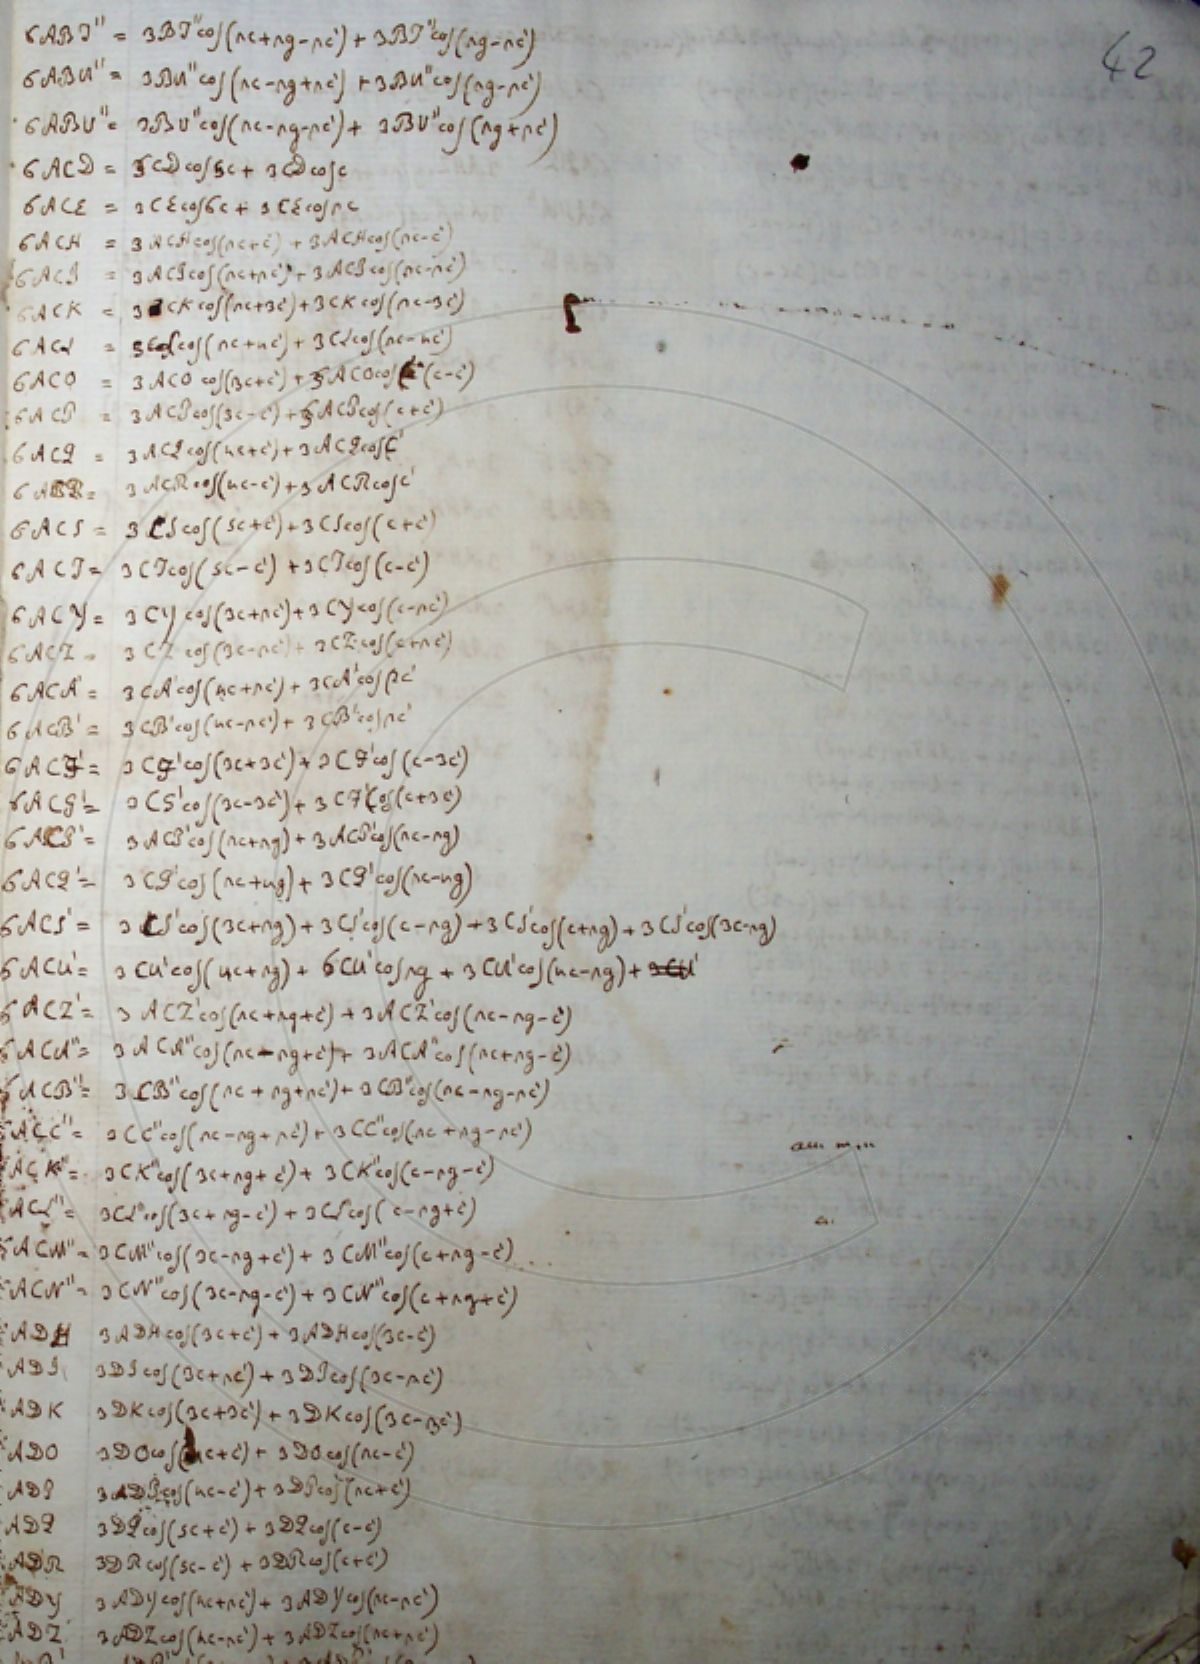 42
6ABT'' = 3BT''cos(nc+ng-nc') + 3BT''cos(ng-nc')
6ABU'' = 3BU''cos(nc-ng+nc') + 3BU''cos(ng-nc')
6ABV'' = 3BV''cos(nc-ng-nc') + 3BV''cos(ng+nc')
6ACD = 3CDcos5c + 3CDcosc
6ACE = 3CEcos6c + 3CEcosnc
6ACH = 3ACHcos(nc+c') + 3ACHcos(nc-c')
6ACI = 3ACIcos(nc+nc') + 3ACIcos(nc-nc')
6ACK = 3CKcos(nc+3c') + 3CKcos(nc-3c')
6ACL = 3CLcos(nc+4c') + 3CLcos(nc-4c')
6ACO = 3ACOcos(3c+c') + 3ACOcos(c-c')
6ACP = 3ACPcos(3c-c') + 3ACPcos(c+c')
6ACQ = 3ACQcos(4c+c') + 3ACQcosc'
6ACR = 3ACRcos(4c-c') + 3ACRcosc'
6ACS = 3CScos(5c+c') + 3CScos(c+c')
6ACT = 3CTcos(5c-c') + 3CTcos(c-c')
6ACY = 3CYcos(3c+nc') + 3CYcos(c-nc')
6ACZ = 3CZcos(3c-nc') + 3CZcos(c+nc')
6ACA' = 3CA'cos(4c+nc') + 3CA'cosnc'
6ACB' = 3CB'cos(4c-nc') + 3CB'cosnc'
6ACF' = 3CF'cos(3c+3c') + 3CF'cos(c-3c')
6ACG' = 3CG'cos(3c-3c') + 3CG'cos(c+3c')
6ACP' = 3ACP'cos(nc+ng) + 3ACP'cos(nc-ng)
6ACQ' = 3CQ'cos(nc+4g) + 3CQ'cos(nc-4g)
6ACS' = 3CS'cos(3c+ng) + 3CS'cos(c-ng) + 3CS'cos(c+ng) + 3CS'cos(3c-ng)
6ACU' = 3CU'cos(4c+ng) + 6CU'cosng + 3CU'cos(4c-ng) + 3CU'
6ACZ' = 3ACZ'cos(nc+ng+c') + 3ACZ'cos(nc-ng-c')
6ACA'' = 3ACA''cos(nc-ng+c') + 3ACA''cos(nc+ng-c')
6ACB'' = 3CB''cos(nc+ng+nc') + 3CB''cos(nc-ng-nc')
6ACC'' = 3CC''cos(nc-ng+nc') + 3CC''cos(nc+ng-nc')
6ACK'' = 3CK''cos(3c+ng+c') + 3CK''cos(c-ng-c')
6ACL'' = 3CL''cos(3c+ng-c') + 3CL''cos(c-ng+c')
6ACM'' = 3CM''cos(3c-ng+c') + 3CM''cos(c+ng-c')
6ACN'' = 3CN''cos(3c-ng-c') + 3CN''cos(c+ng+c')
6ADH 3ADHcos(3c+c') + 3ADHcos(3c-c')
6ADI 3DIcos(3c+nc') + 3DIcos(3c-nc')
6ADK 3DKcos(3c+3c') + 3DKcos(3c-3c')
6ADO 3DOcos(4c+c') + 3DOcos(nc-c')
6ADP 3ADPcos(4c-c') + 3DPcos(nc+c')
6ADQ 3DQcos(5c+c') + 3DQcos(c-c')
6ADR 3DRcos(5c-c') + 3DRcos(c+c')
6ADY 3ADYcos(4c+nc') + 3ADYcos(nc-nc')
6ADZ 3ADZcos(4c-nc') + 3ADZcos(nc+nc')